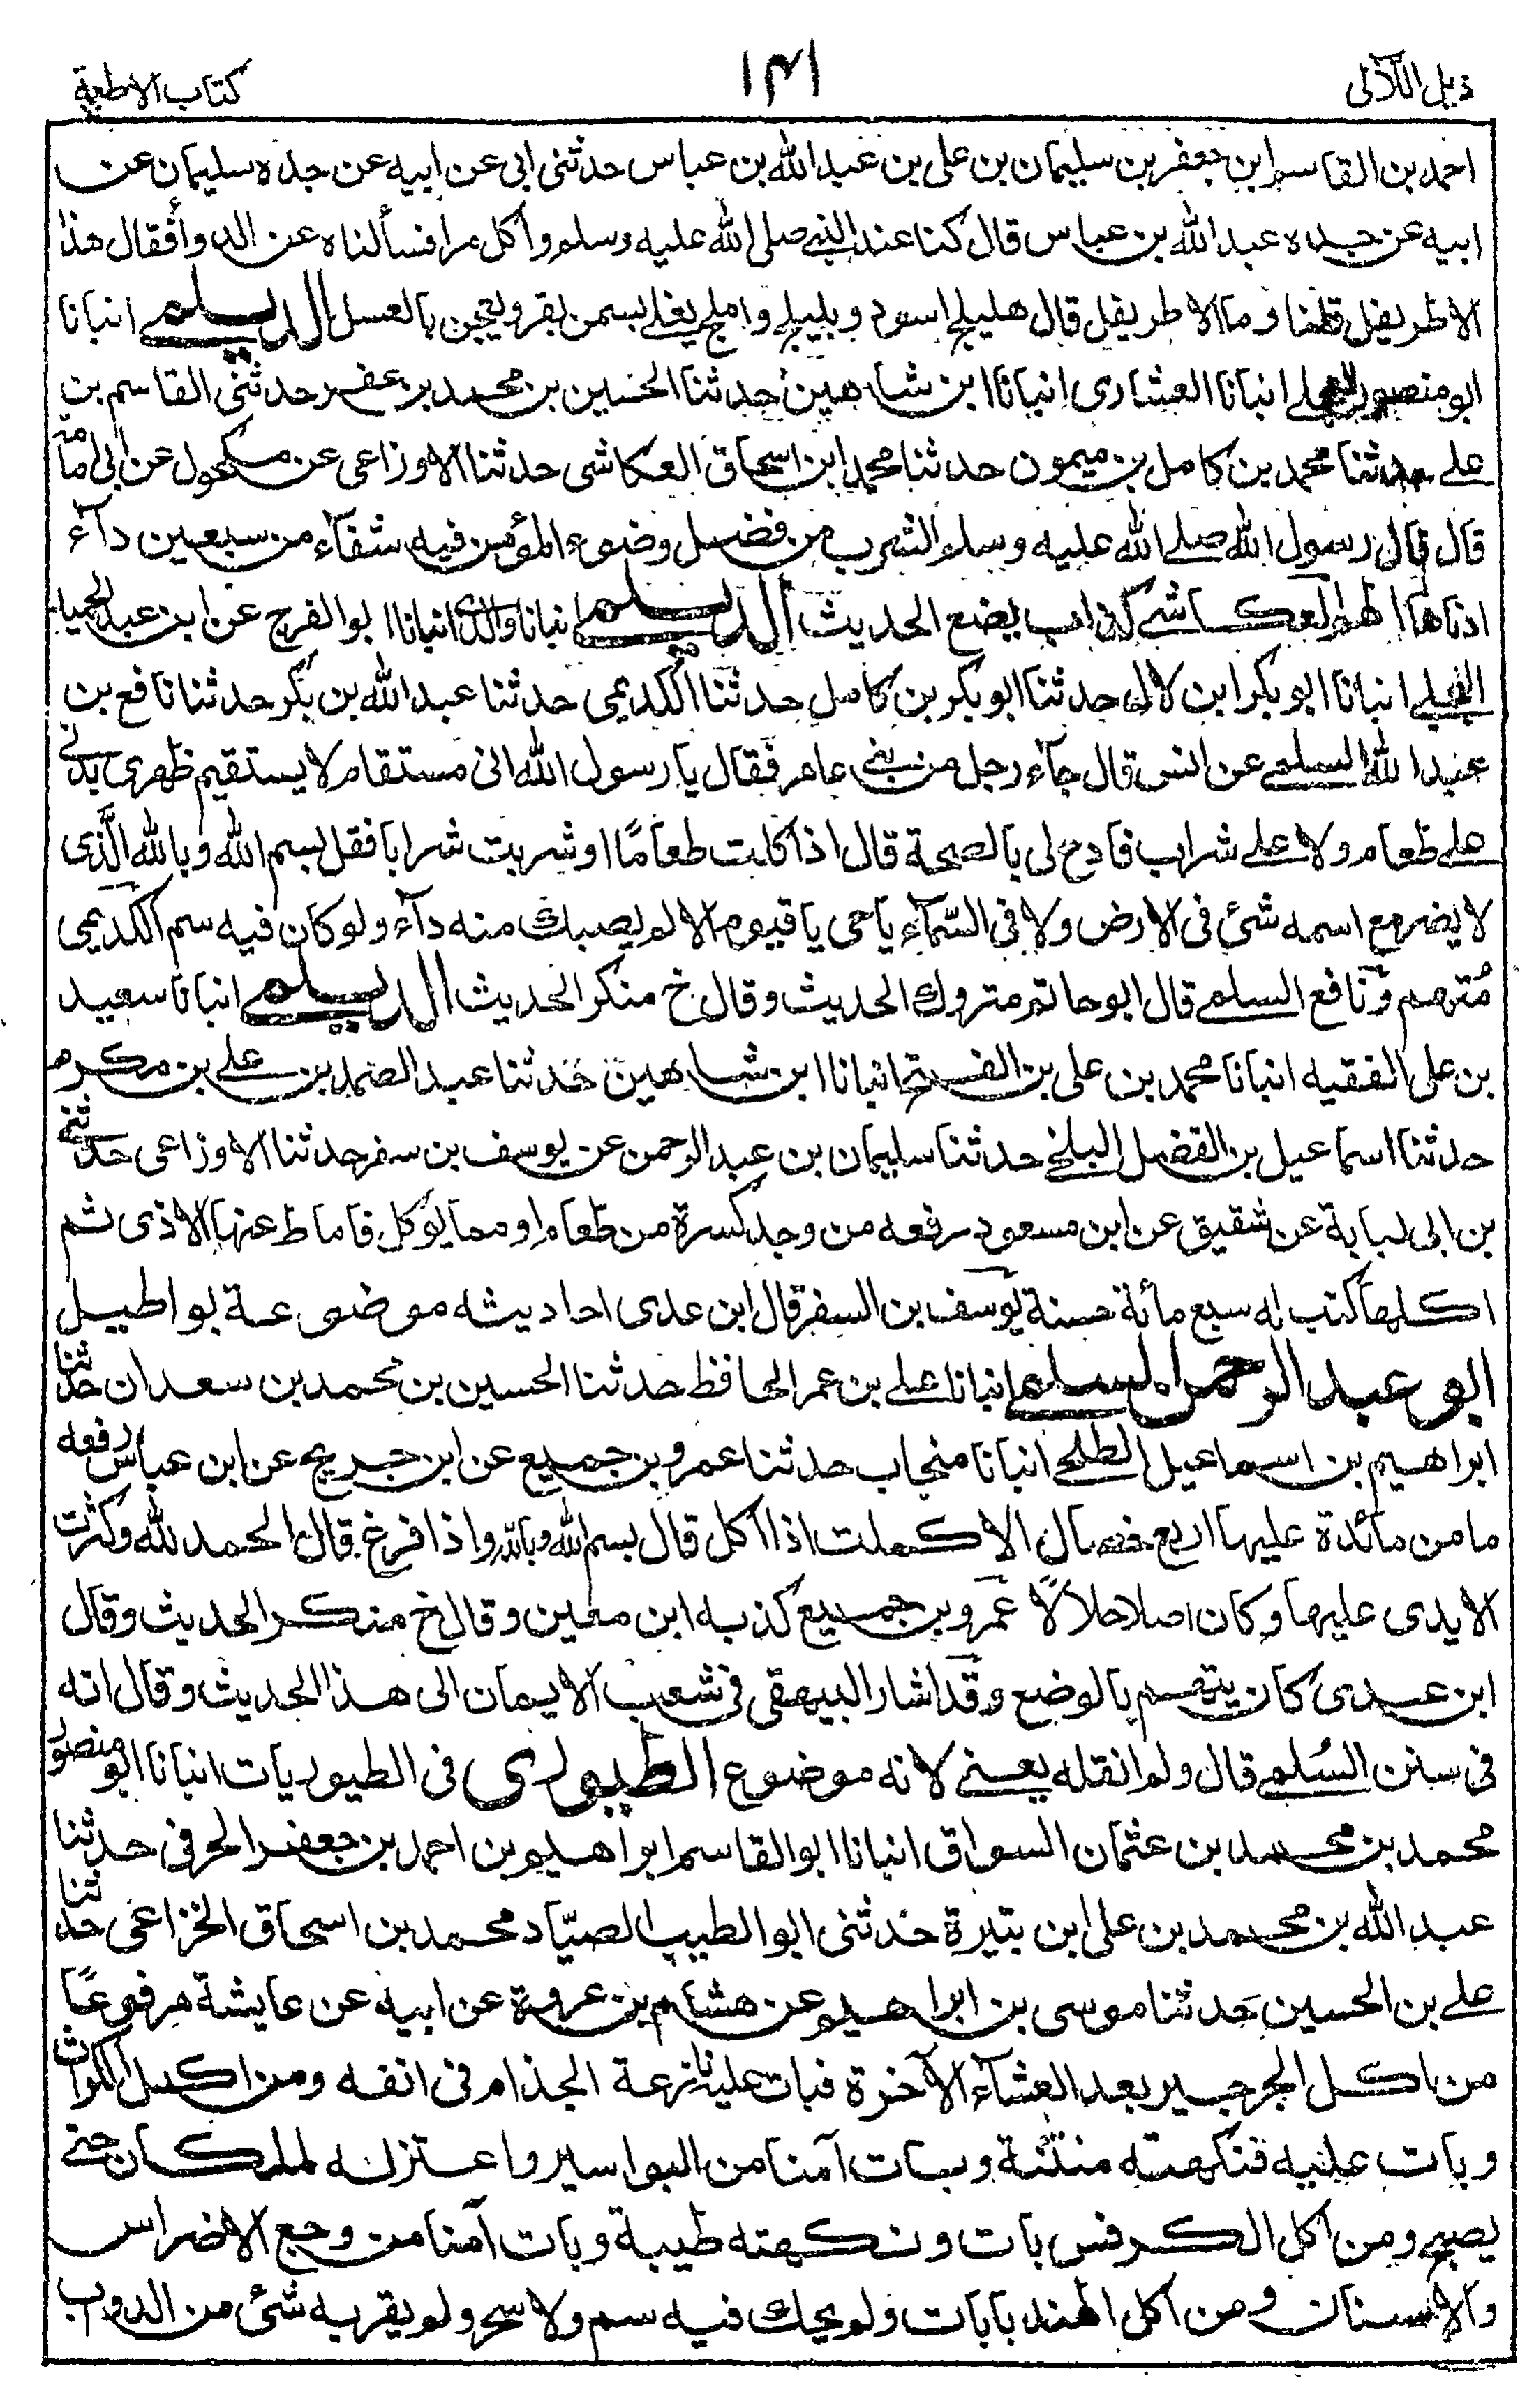 ذيل اللآلئ
١٤١
كتاب الاطعمة
احمد بن القاسم ابن جعفر بن سليمان بن على بن عبد الله بن عباس حدثنى ابى عن ابيه عن جده سليمان عن
ابيه عن جده عبد الله بن عباس قال كنا عند النبى صلى الله عليه وسلم وأكل مرا فسألناه عن الدواء فقال هذا
الاطريفل قلنا وما الاطريفل قال هليلج اسود وبليلج واملج يغلى بسمن بقر ويعجن بالعسل الديلمى انبانا
ابو منصور انبانا العشارى انبانا ابن شاهين حدثنا الحسين بن محمد بن عفير حدثنى القاسم بن
على حدثنا محمد بن كامل بن ميمون حدثنا محمد ابن اسحاق العكاشى حدثنا الاوزاعى عن مكحول عن ابى امامة
قال قال رسول الله صلى الله عليه وسلم الشرب من فضل وضوء المؤمن فيه شفآء من سبعين دآء
ادناها الهم العكاشى كذاب يضع الحديث الديلمى انبانا والدى انبانا ابو الفرج عن ابن عبد الحميد
البجلى انبانا ابو بكر ابن لال حدثنا ابو بكر بن كامل حدثنا الكديمى حدثنا عبد الله بن بكر حدثنا نافع بن
عبد الله السلمى عن انس قال جآء رجل من بنى عامر فقال يا رسول الله انى مستقام لا يستقيم ظهرى بدنى
على طعام ولا على شراب فادع لى بالصحة قال اذا كلت طعامًا او شربت شرابا فقل بسم الله وبالله الَّذى
لا يضر مع اسمه شئ فى الارض ولا فى السّمآء يا حى يا قيوم الا لم يصبك منه دآء ولو كان فيه سم الكديمى
مُتهم ونافع السلمى قال ابو حاتم متروك الحديث وقال خ منكر الحديث الديلمى انبانا سعيد
بن على الفقيه انبانا محمد بن على بن الفتح انبانا ابن شاهين حدثنا عبد الصمد بن على بن مكرم
حدثنا اسماعيل بن الفضل البلخى حدثنا سليمان بن عبد الرحمن عن يوسف بن سفر حدثنا الاوزاعى حدثنى
بن ابى لبابة عن شقيق عن ابن مسعود رفعه من وجد كسرة من طعام او مما يؤكل فاماط عنها الاذى ثم
اكلها كتب له سبع مأئة حسنة يوسف بن السفر قال ابن عدى احاديثه موضوعة بواطيل
ابو عبد الرحمن السلمى انبانا على بن عمر الحافظ حدثنا الحسين بن محمد بن سعدان حدثنا
ابراهيم بن اسماعيل الطلحى انبانا منجاب حدثنا عمرو بن جميع عن ابن جريج عن ابن عباس رفعه
ما من مآئدة عليها اربع خصال الا كملت اذا اكل قال بسم الله وبالله واذا فرغ قال الحمد لله وكثرت
الايدى عليها وكان اصلا حلالًا عمرو بن جميع كذبه ابن معين وقال خ منكر الحديث وقال
ابن عدى كان يتهم بالوضع وقد اشار البيهقى فى شعب الايمان الى هذا الحديث وقال انه
فى سنن السُلمى قال ولم انقله يعنى لانه موضوع الطيورى فى الطيوريات انبانا ابو منصور
محمد بن محمد بن عثمان السواق انبانا ابو القاسم ابراهيم بن احمد بن جعفر الخرفى حدثنا
عبد الله بن محمد بن على ابن بتيرة حدثنى ابو الطيب الصيّاد محمد بن اسحاق الخزاعى حدثنا
على بن الحسين حدثنا موسى بن ابراهيم عن هشام بن عروة عن ابيه عن عايشة مرفوعًا
من اكل الجرجير بعد العشآء الآخرة فبات عليه نازعة الجذام فى انفه ومن اكل الكراث
وبات عليه فنكهته منتنة وبات آمنا من البواسير واعتزله الملكان حتى
يصبح ومن اكل الكرفس بات ونكهته طيبة وبات آمنا من وجع الاضراس
والاسنان ومن اكل الهندبا بات ولم يحك فيه سم ولا سحر ولم يقربه شئ من الدواب